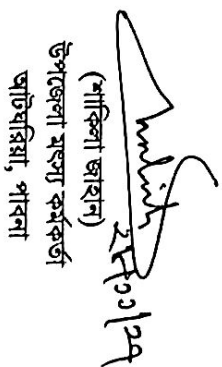 (শাকিলা জাহান)
উপজেলা মৎস্য কর্মকর্তা
আটঘরিয়া, পাবনা